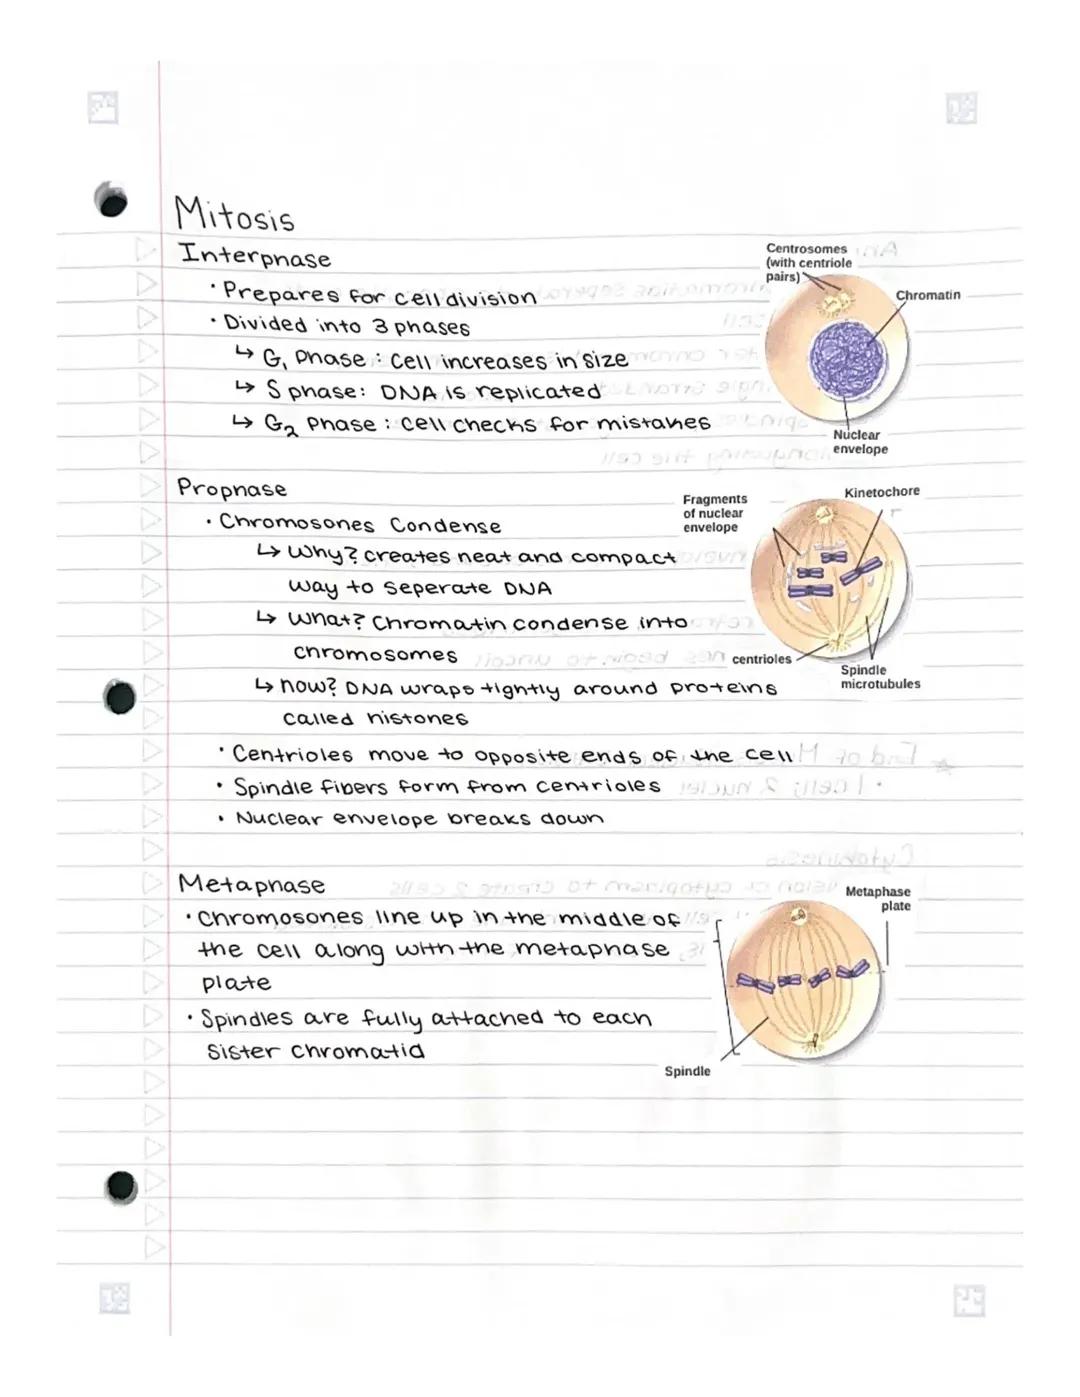 Mitosis
Interphase
· Prepares for cell division
· Divided into 3 phases
↳ G₁ Phase : Cell increases in size
↳ S phase: DNA is replicated
↳ G₂ Phase : Cell checks for mistakes
Centrosomes
(with centriole
pairs)
Chromatin
Nuclear
envelope
Prophase
· Chromosones Condense
↳ Why? creates neat and compact
way to seperate DNA
↳ What? Chromatin condense into
chromosomes
↳ how? DNA wraps tightly around proteins
called histones
· Centrioles move to opposite ends of the cell
· Spindle fibers form from centrioles
· Nuclear envelope breaks down
Fragments
of nuclear
envelope
Kinetochore
centrioles
Spindle
microtubules
Metaphase
· Chromosones line up in the middle of
the cell along with the metaphase
plate
· Spindles are fully attached to each
Sister chromatid
Metaphase
plate
Spindle